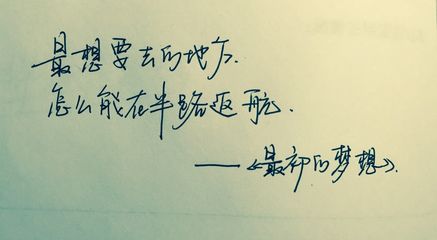 最想要去的地方.
怎么能在半路返航.
——《最初的梦想》.